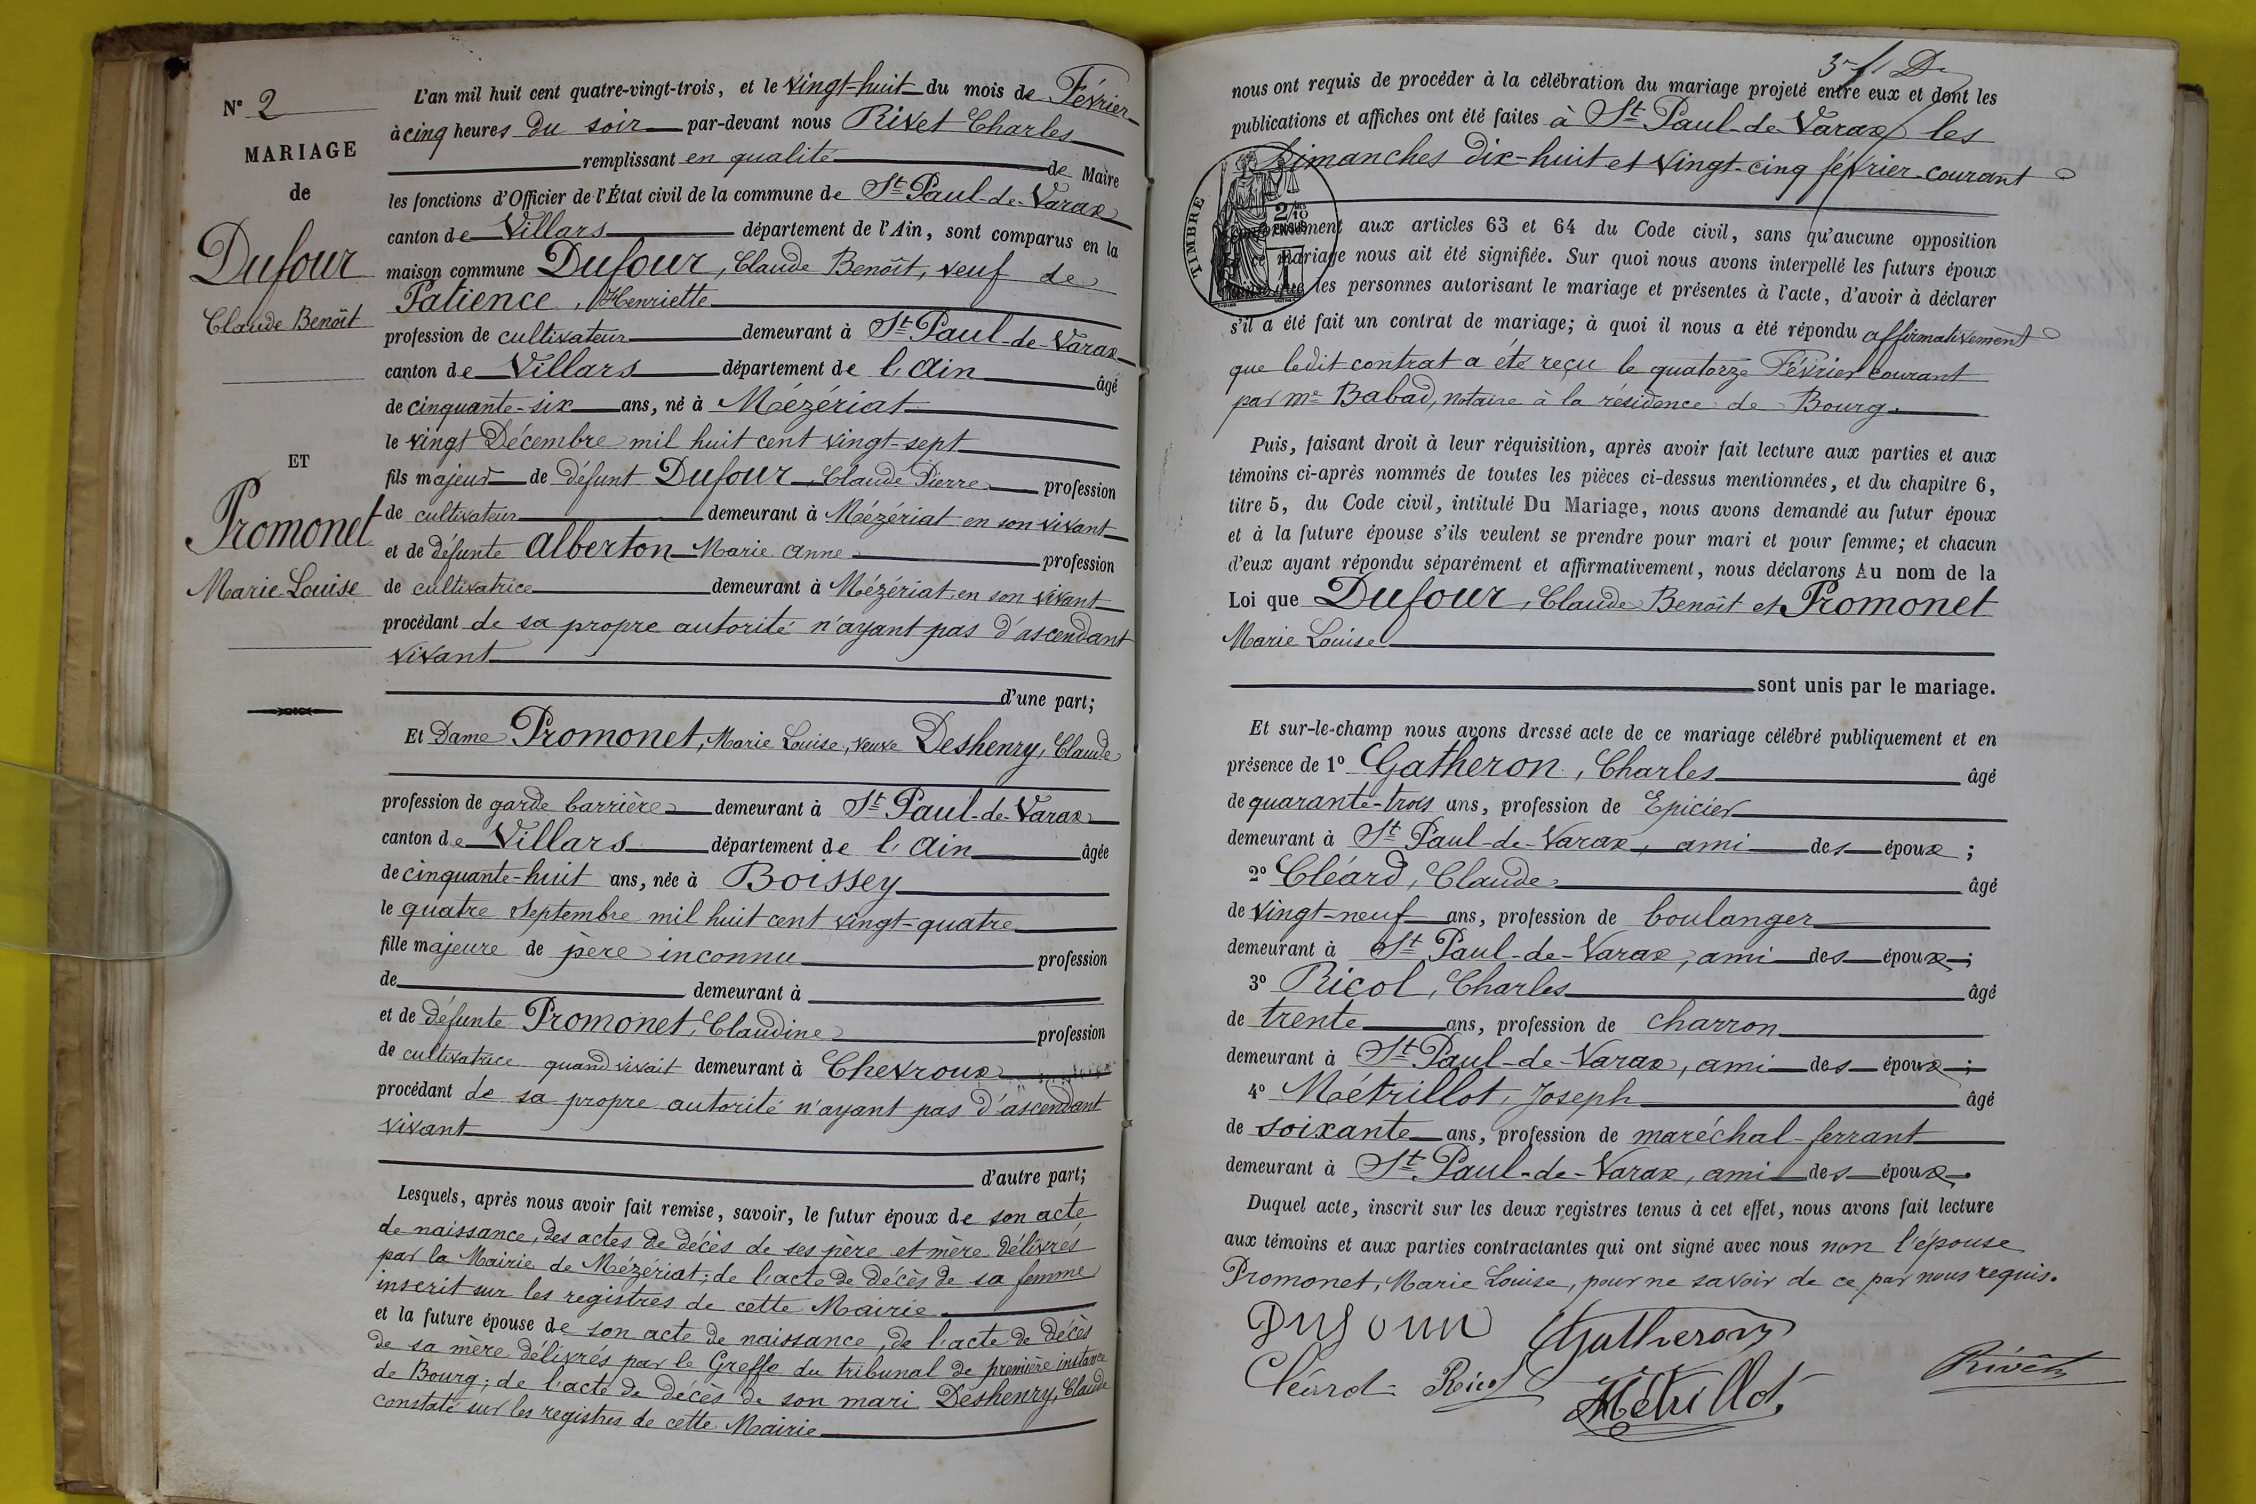 N° 2
MARIAGE
de
Dufour
Claude Benoît
ET
Promonet
Marie Louise
L'an mil huit cent quatre-vingt-trois, et le vingt-huit du mois de Février
à cinq heures du soir par-devant nous Rivet Charles
remplissant en qualité de Maire
les fonctions d'Officier de l'État civil de la commune de St Paul-de-Varax
canton de Villars département de l'Ain, sont comparus en la
maison commune Dufour, Claude Benoît, veuf de
Patience, Henriette
profession de cultivateur demeurant à St Paul-de-Varax
canton de Villars département de l'Ain âgé
de cinquante-six ans, né à Mézériat
le vingt Décembre mil huit cent vingt-sept
fils majeur de défunt Dufour, Claude Pierre profession
de cultivateur demeurant à Mézériat en son vivant
et de défunte Alberton Marie Anne profession
de cultivatrice demeurant à Mézériat en son vivant
procédant de sa propre autorité n'ayant pas d'ascendant
vivant
d'une part;
Et Dame Promonet, Marie Louise, veuve Deshenry, Claude
profession de garde barrière demeurant à St Paul-de-Varax
canton de Villars département de l'Ain âgée
de cinquante-huit ans, née à Boissey
le quatre septembre mil huit cent vingt-quatre
fille majeure de père inconnu profession
de demeurant à
et de défunte Promonet, Claudine profession
de cultivatrice quand vivait demeurant à Chevroux
procédant de sa propre autorité n'ayant pas d'ascendant
vivant
d'autre part;
Lesquels, après nous avoir fait remise, savoir, le futur époux de son acte
de naissance, des actes de décès de ses père et mère délivrés
par la Mairie de Mézériat; de l'acte de décès de sa femme
inscrit sur les registres de cette Mairie
et la future épouse de son acte de naissance, de l'acte de décès
de sa mère délivrés par le Greffe du tribunal de première instance
de Bourg; de l'acte de décès de son mari Deshenry, Claude
constaté sur les registres de cette Mairie
nous ont requis de procéder à la célébration du mariage projeté entre eux et dont les
publications et affiches ont été faites à St Paul-de-Varax les
Dimanches dix-huit et vingt-cinq février courant
TIMBRE
2/10
EN SUS
conformément aux articles 63 et 64 du Code civil, sans qu'aucune opposition
mariage nous ait été signifiée. Sur quoi nous avons interpellé les futurs époux
les personnes autorisant le mariage et présentes à l'acte, d'avoir à déclarer
s'il a été fait un contrat de mariage; à quoi il nous a été répondu affirmativement
que ledit contrat a été reçu le quatorze Février courant
par Me Babad, notaire à la résidence de Bourg.
Puis, faisant droit à leur réquisition, après avoir fait lecture aux parties et aux
témoins ci-après nommés de toutes les pièces ci-dessus mentionnées, et du chapitre 6,
titre 5, du Code civil, intitulé Du Mariage, nous avons demandé au futur époux
et à la future épouse s'ils veulent se prendre pour mari et pour femme; et chacun
d'eux ayant répondu séparément et affirmativement, nous déclarons Au nom de la
Loi que Dufour, Claude Benoît et Promonet
Marie Louise
sont unis par le mariage.
Et sur-le-champ nous avons dressé acte de ce mariage célébré publiquement et en
présence de 1° Gatheron, Charles âgé
de quarante-trois ans, profession de Epicier
demeurant à St Paul-de-Varax, ami des époux;
2° Cléard, Claude âgé
de vingt-neuf ans, profession de boulanger
demeurant à St Paul-de-Varax, ami des époux;
3° Ricol, Charles âgé
de trente ans, profession de charron
demeurant à St Paul-de-Varax, ami des époux;
4° Métrillot, Joseph âgé
de soixante ans, profession de maréchal-ferrant
demeurant à St Paul-de-Varax, ami des époux.
Duquel acte, inscrit sur les deux registres tenus à cet effet, nous avons fait lecture
aux témoins et aux parties contractantes qui ont signé avec nous non l'épouse
Promonet, Marie Louise, pour ne savoir de ce par nous requis.
Dufour Gatheron
Cléard Ricol Métrillot Rivet